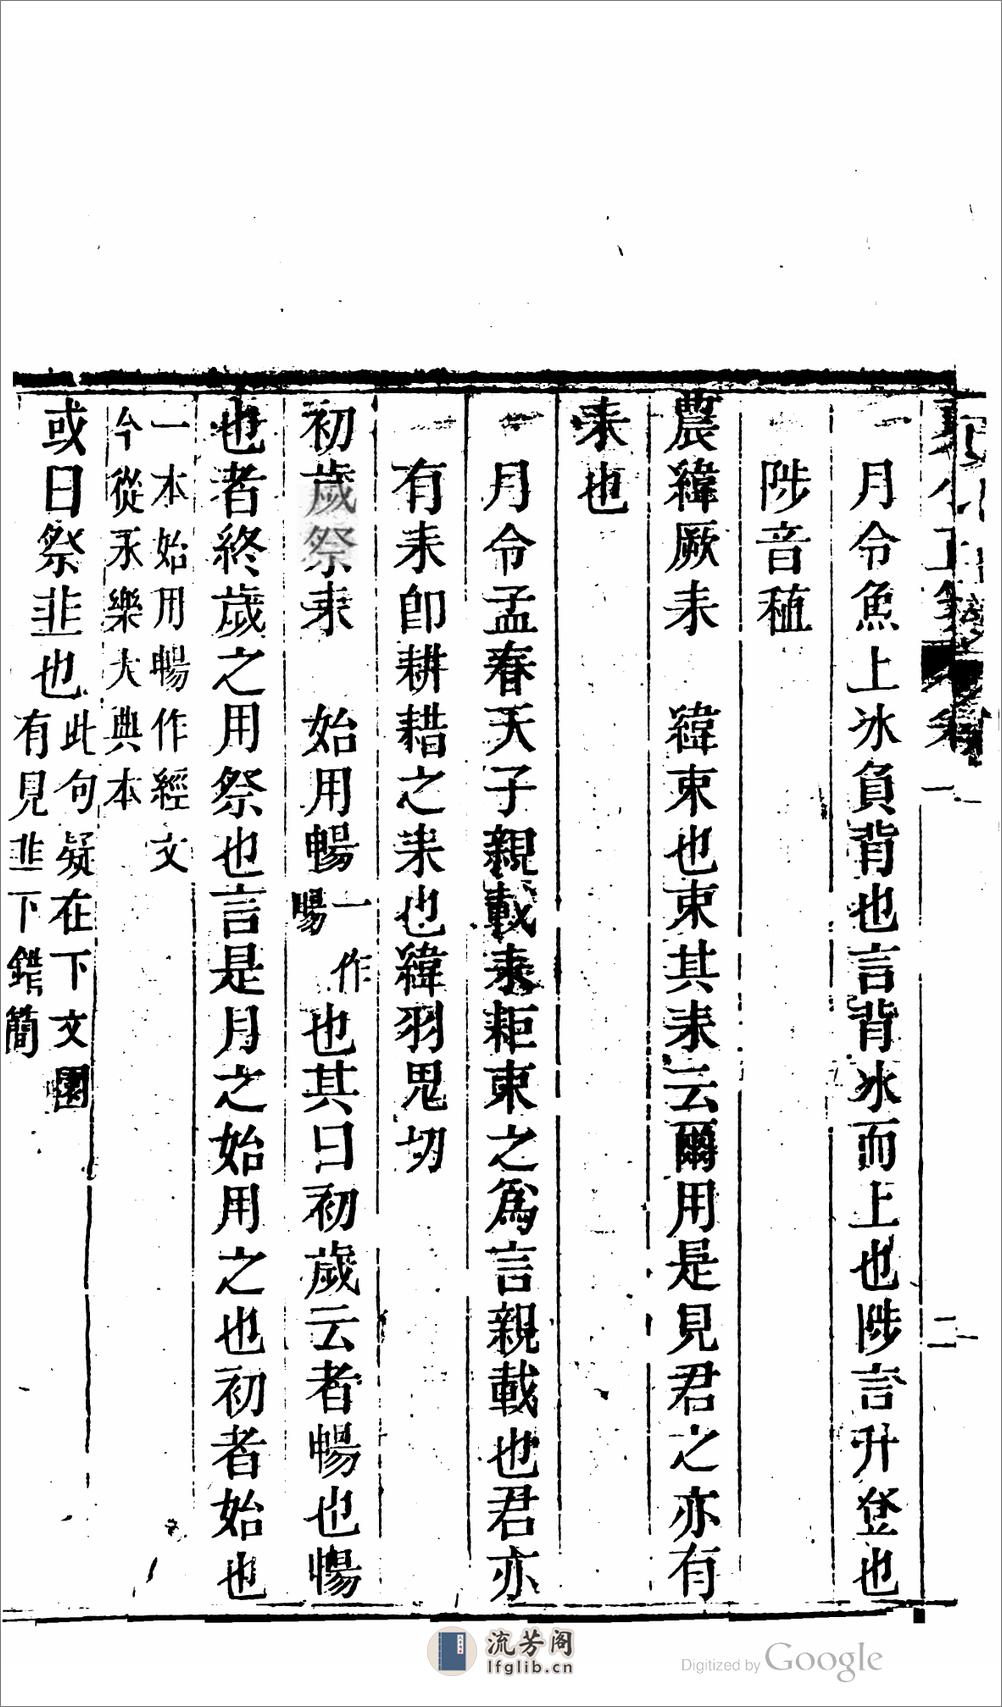 月令魚上冰負背也言背冰而上也陟言升登也
陟音稙
農緯厥耒　緯束也束其耒云爾用是見君之亦有
耒也
月令孟春天子親載耒耟束之為言親載也君亦
有耒即耕耤之耒也緯羽鬼切
初歲祭耒　始用暢一作暘也其曰初歲云者暢也暢
也者終歲之用祭也言是月之始用之也初者始也
一本始用暢作經文
今從永樂大典本
或曰祭韭也此句疑在下文囿有見韭下錯簡
流芳阁
lfglib.cn
Digitized by Google